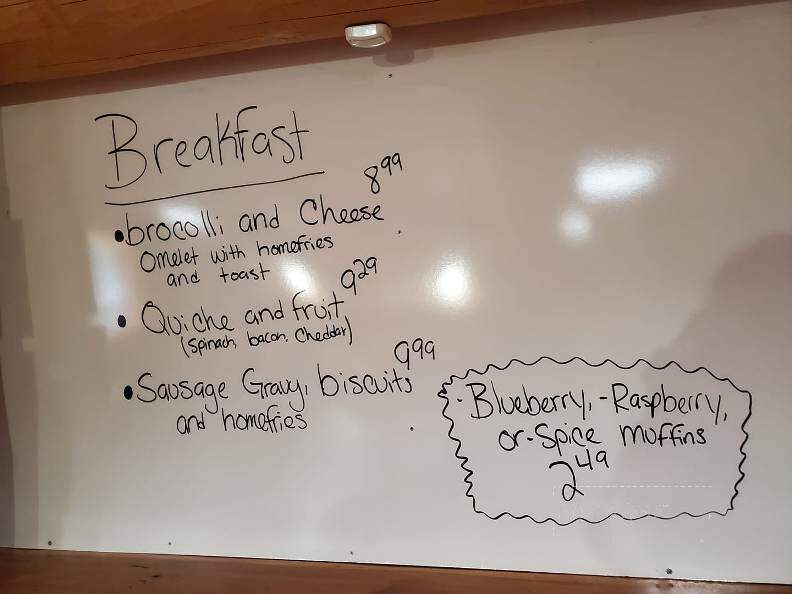 Breakfast
8.99
• brocolli and Cheese
Omelet with homefries
and toast
9.29
• Quiche and fruit
(Spinach, bacon, Cheddar)
9.99
• Sausage Gravy, biscuits
and homefries
-Blueberry, -Raspberry,
or -Spice muffins
2.49